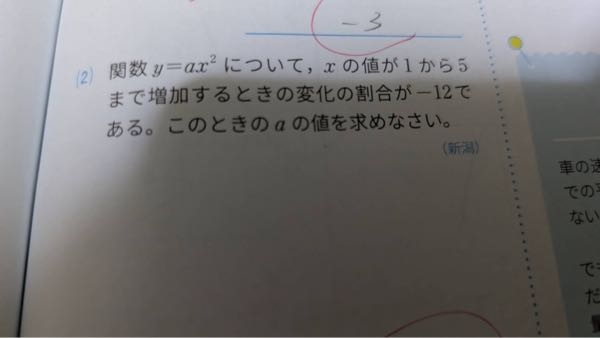 -3
(2) 関数 y=ax² について，x の値が1から5
まで増加するときの変化の割合が−12で
ある。このときの a の値を求めなさい。
(新潟)
車の速
での平
ない
でも
だ
量